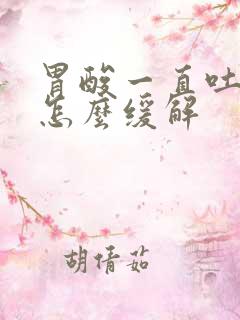 胃酸一直吐
怎麼缓解
胡倩茹